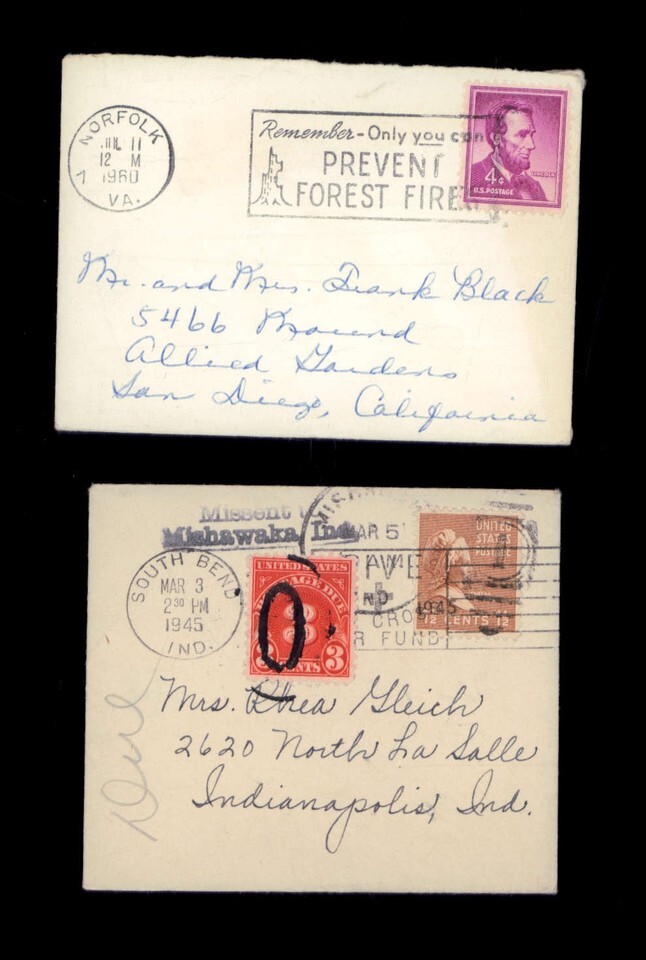 NORFOLK
JUL 11
12 M
1960
VA.
Remember - Only you can
PREVENT
FOREST FIRE
4¢
LINCOLN
U.S. POSTAGE
Mr. and Mrs. Frank Black
5466 Mound
Allied Gardens
San Diego, California
Missent
Mishawaka Ind.
SOUTH BEND
MAR 3
2 30 PM
1945
IND.
MAR 5
1945
IND
CRO
R FUND
UNITED STATES
AGE DUE
3
CENTS 3
0
UNITED
STATES
POSTAGE
12 CENTS 12
Due
Mrs. Rhea Gleich
2620 North La Salle
Indianapolis, Ind.